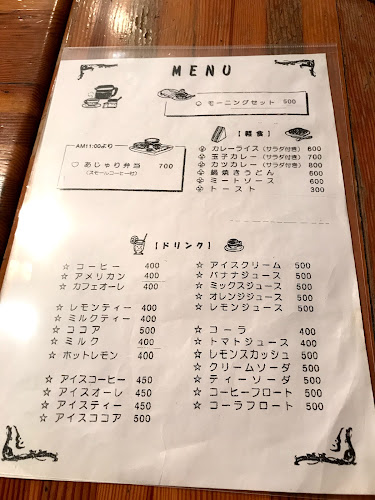 MENU
○ モーニングセット 500
AM11:00より
○ あじゃり弁当 700
(スモールコーヒー付)
【軽食】
カレーライス(サラダ付き) 600
玉子カレー(サラダ付き) 700
カツカレー(サラダ付き) 800
鍋焼きうどん 600
ミートソース 600
トースト 300
【ドリンク】
☆ コーヒー 400
☆ アメリカン 400
☆ カフェオーレ 400
☆ レモンティー 400
☆ ミルクティー 400
☆ ココア 500
☆ ミルク 400
☆ ホットレモン 400
☆ アイスコーヒー 450
☆ アイスオーレ 450
☆ アイスティー 450
☆ アイスココア 500
☆ アイスクリーム 500
☆ バナナジュース 500
☆ ミックスジュース 500
☆ オレンジジュース 500
☆ レモンジュース 500
☆ コーラ 400
☆ トマトジュース 400
☆ レモンスカッシュ 500
☆ クリームソーダ 500
☆ ティーソーダ 500
☆ コーヒーフロート 500
☆ コーラフロート 500